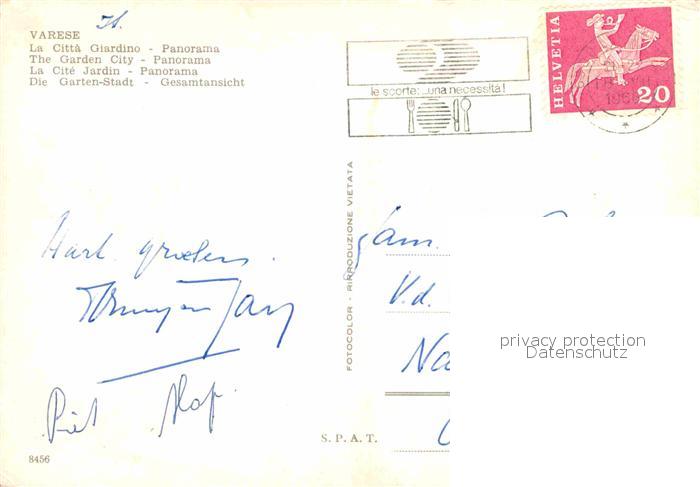 It.
VARESE
La Città Giardino - Panorama
The Garden City - Panorama
La Cité Jardin - Panorama
Die Garten-Stadt - Gesamtansicht
le scorte: ...una necessità!
HELVETIA
20
1968
FOTOCOLOR - RIPRODUZIONE VIETATA
Hart. groeten.
Fam.
V.d.
Na
privacy protection
Datenschutz
Piet
S. P. A. T.
8456